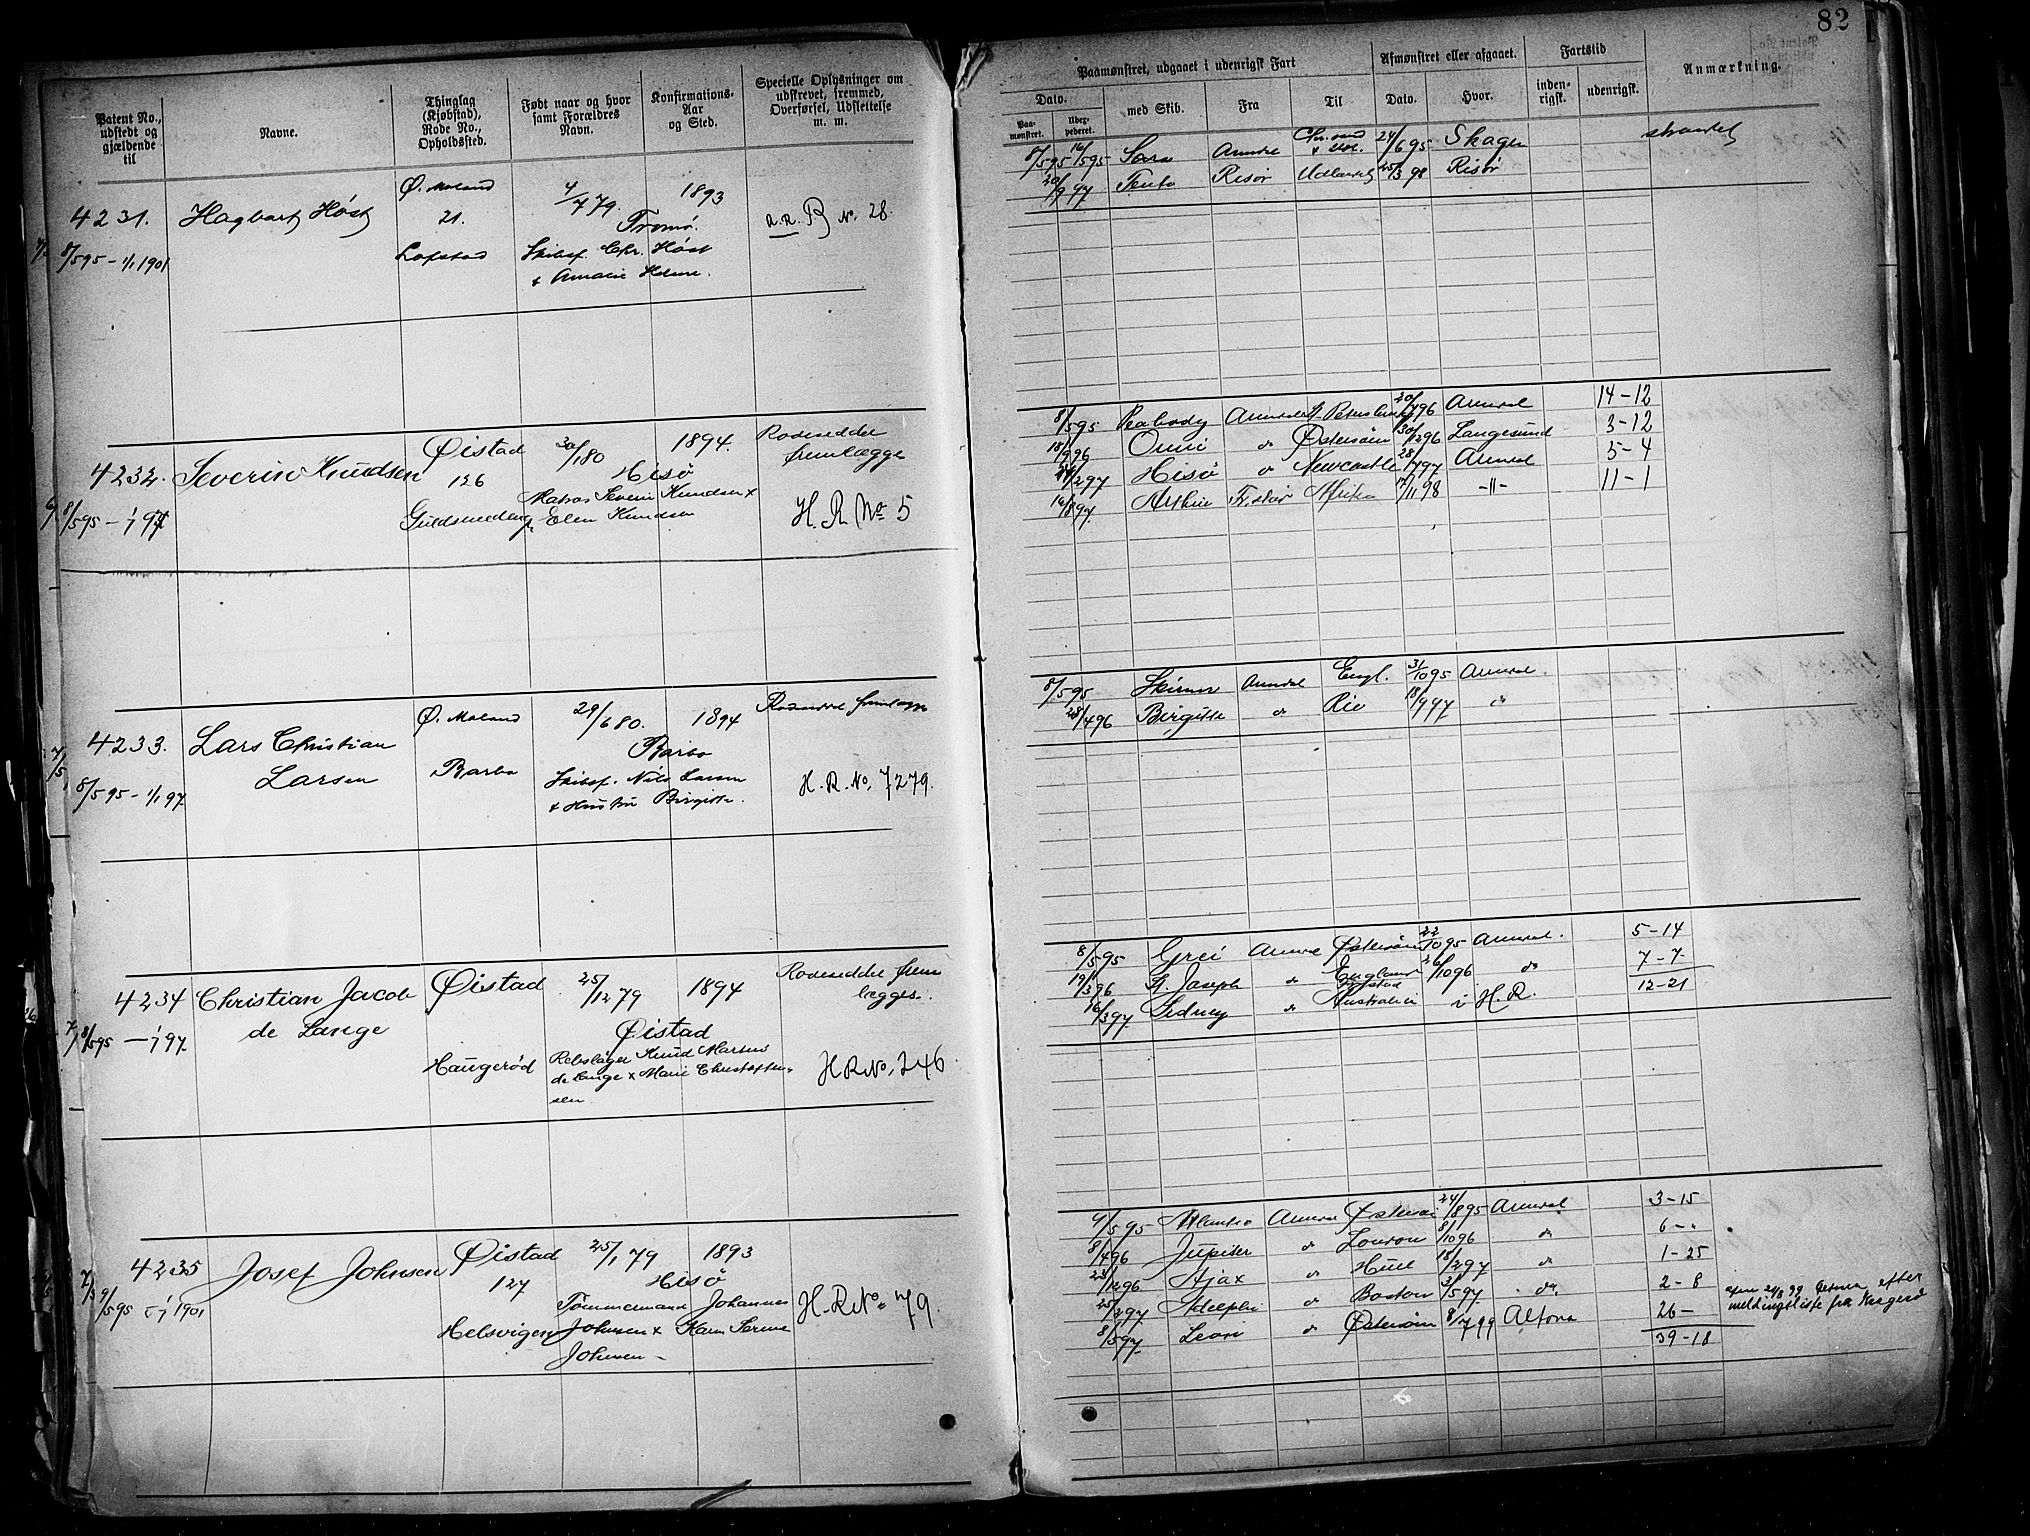 82
Patent No., udstedt og gjældende til
Navne.
Thinglag (Kjøbstad), Rode No., Opholdssted.
Født naar og hvor samt Forældres Navn.
Konfirmations-Aar og Sted.
Specielle Oplysninger om udskrevet, fremmed, Overførsel, Udslettelse m. m.
Paamønstret, udgaaet i udenrigsk Fart
Afmønstret eller afgaaet.
Fartstid
Anmærkning.
Dato.
med Skib.
Fra
Til
Dato.
Hvor.
inden-rigsk.
udenrigsk.
Paa-mønstret.
4231. Hagbart Høst
Ø. Moland
21.
4/7 79.
1893
Tromø.
a.a. R No. 28.
8/5 95 – 1/1 1901
Skibsf. Chr. Høst
8/5 95 16/5 95 Sara
24/6 95 Skagen
strandet
20/9 97 Risør Udlandet 25/3 98 Risør
4232. Severin Knudsen
Øistad
126
30/1 80
1894.
Hisø
Rodeseddel fremlægges
8/5 95 – 1/1 97
Matros Severin Knudsen x
Elen Knudsen
H. R No 5
8/5 95 Peabody Arendal 20/7 96 Arendal 14-12
18/9 96 do Østersøen 30/12 96 Langesund 3-12
Hisø do Newcastle 28/7 97 Arendal 5-4
16/8 97 Arthur Afrika 17/11 98 -"- 11-1
4233. Lars Christian Larsen
Ø. Moland
Barbo
29/6 80.
1894
Barbo
8/5 95 – 1/1 97
Skibsf. Nils Larsen
x Hustru Birgitte.
H. R. No. 7279.
8/5 95 Skirner Arendal Engl. 31/10 95 Arendal.
28/4 96 Birgitte do Rio 18/9 97 do
4234 Christian Jacob de Lange
Øistad
Haugerød
25/12 79
1894
Øistad
Rodeseddel frem lægges.
8/5 95 – 1/1 97.
Rebslager Knud Martin
de Lange x Marie Christoffer-
sen.
H R No. 246
8/5 95 Grei Arendal Østersøen 22/10 95 Arendal. 5-14
19/3 96 St. Joseph do England 26/10 96 do 7-7
16/3 97 Sidney do Australien i H. R. 12-21
4235 Josef Johnsen
Øistad
127
Helsvigen
25/1 79
1893
Hisø
9/5 95 – 1/1 1901
Tømmermand Johannes
Johnsen x Karen Serine
Johnsen –
H. R No. 79.
9/5 95 Atlanta Arendal Østersøen 24/8 95 Arendal 3-15
8/4 96 Jupiter do London 8/10 96 do 6-"
23/12 96 Ajax do Hull 18/2 97 do 1-25
25/2 97 Adelphi do Boston 3/5 97 do. 2-8
8/5 97 Leon do Østersøen 8/7 99 Altona 26-
39-18
efter
meldingsliste fra Kragerø